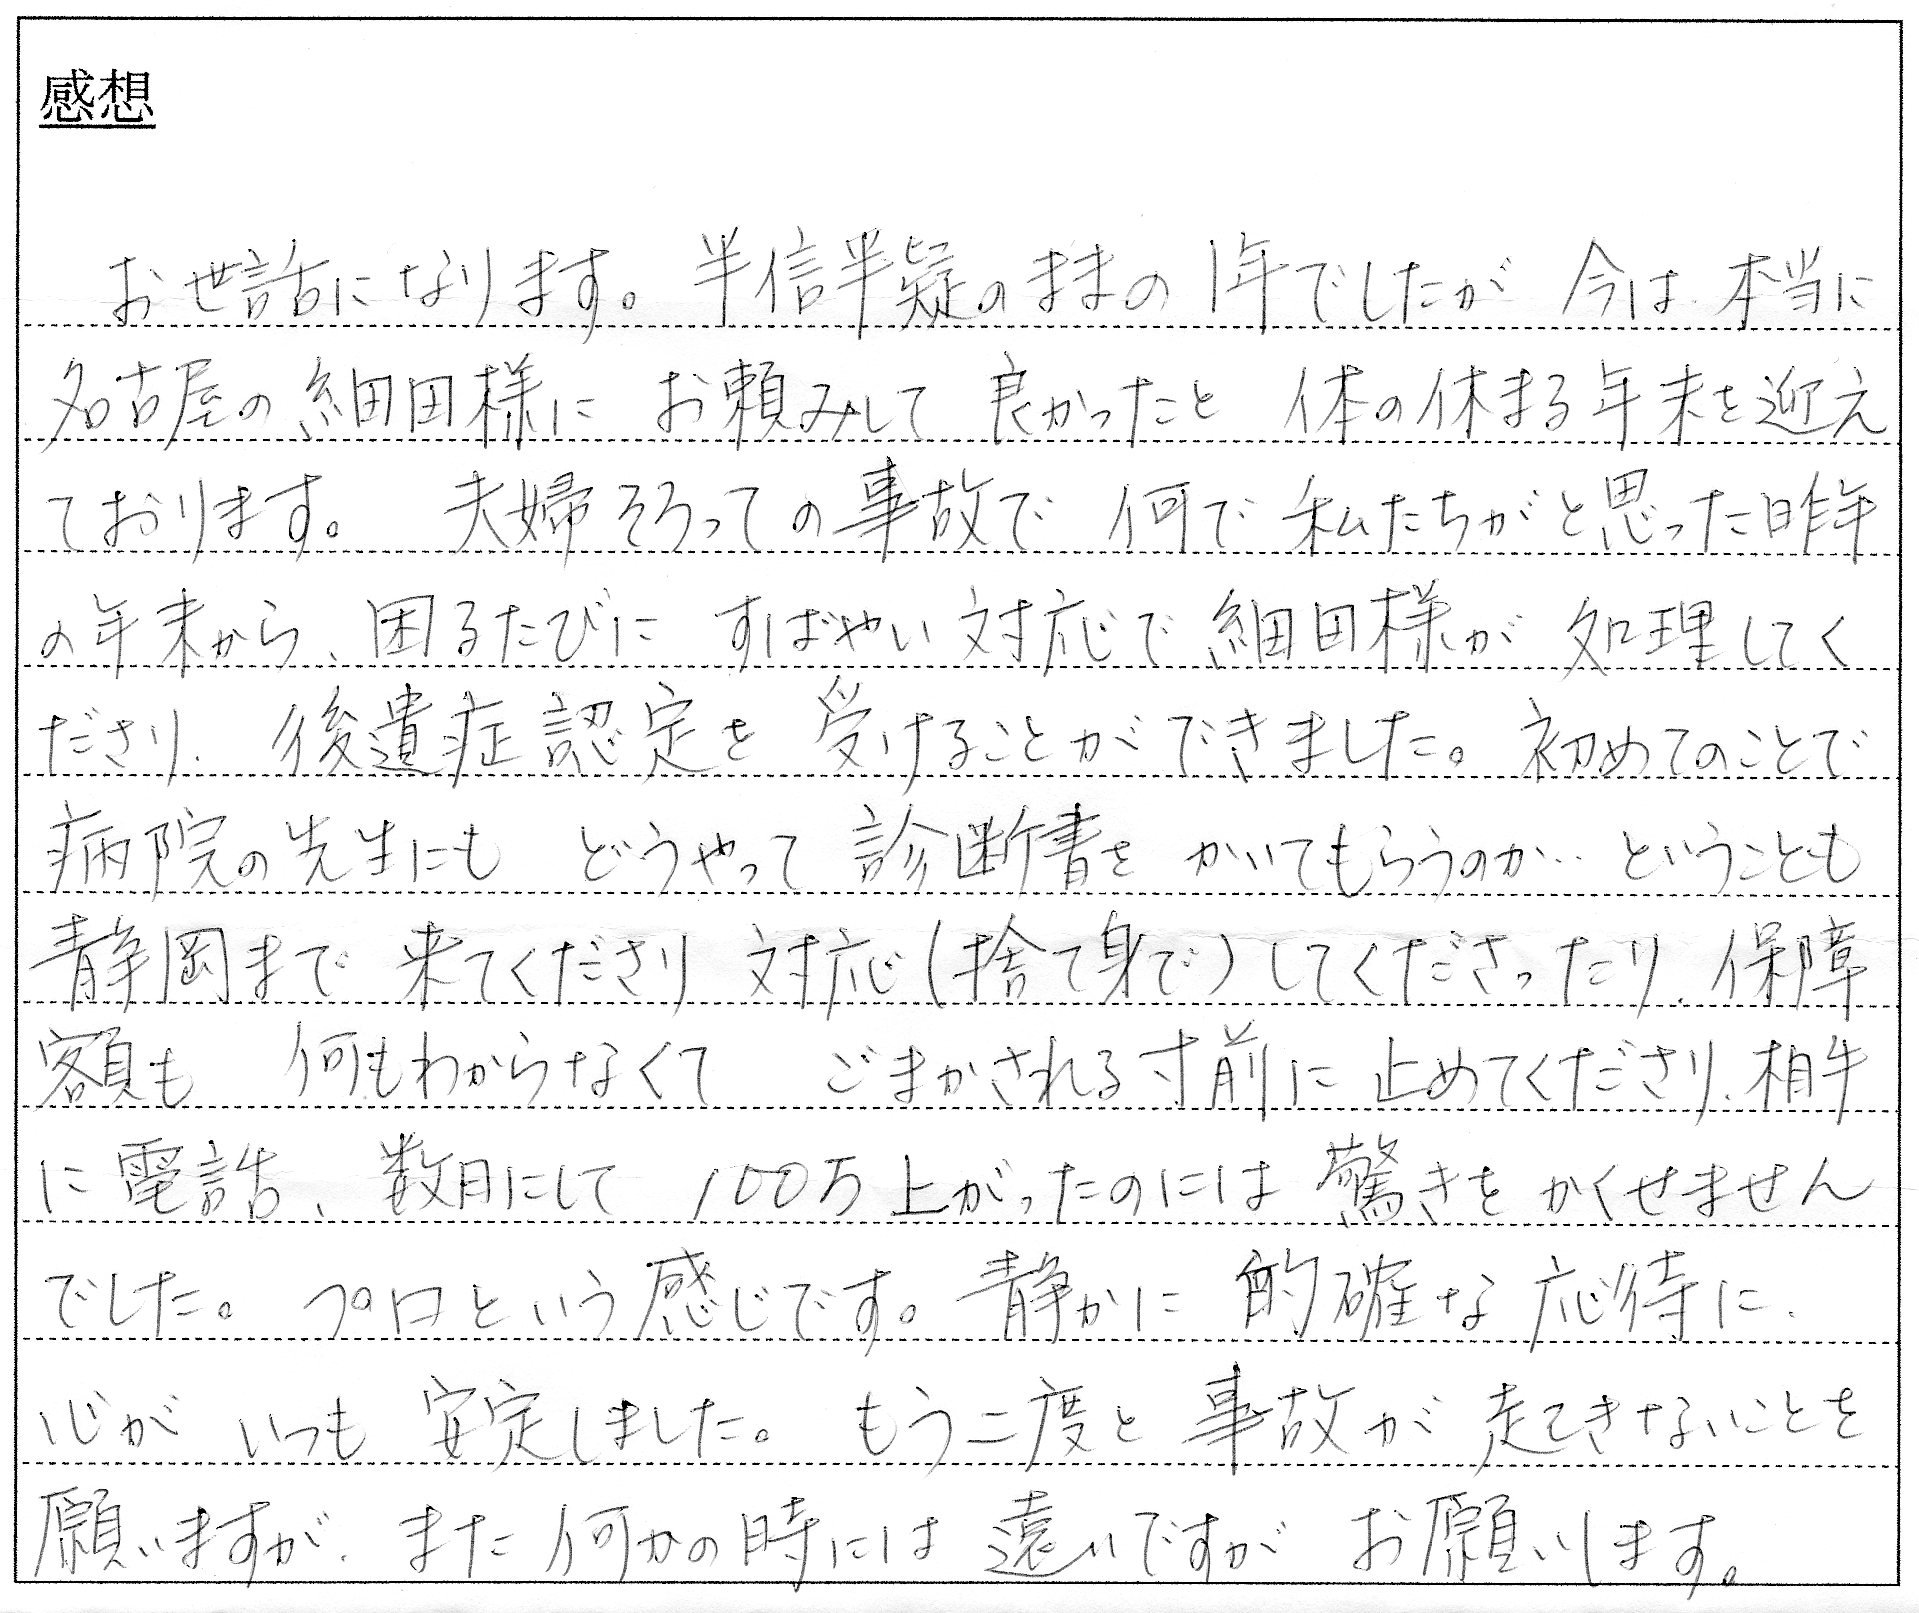 感想
お世話になります。半信半疑のままの1年でしたが 今は、本当に
名古屋の細田様に お頼みして 良かったと 体の休まる年末を迎え
ております。 夫婦そろっての事故で 何で私たちがと思った昨年
の年末から、困るたびに すばやい対応で細田様が 処理してく
ださり、後遺症認定を 受けることができました。初めてのことで
病院の先生にも どうやって 診断書を かいてもらうのか…ということも
静岡まで 来てくださり 対応(捨て身で)してくださったり、保障
額も 何もわからなくて ごまかされる寸前に 止めてくださり、相手
に電話、数日にして 100万上がったのには 驚きを かくせません
でした。プロという感じです。静かに 的確な 応待に、
心が いつも 安定しました。もう二度と 事故が 起きないことを
願いますが、また 何かの時には 遠いですが お願いします。